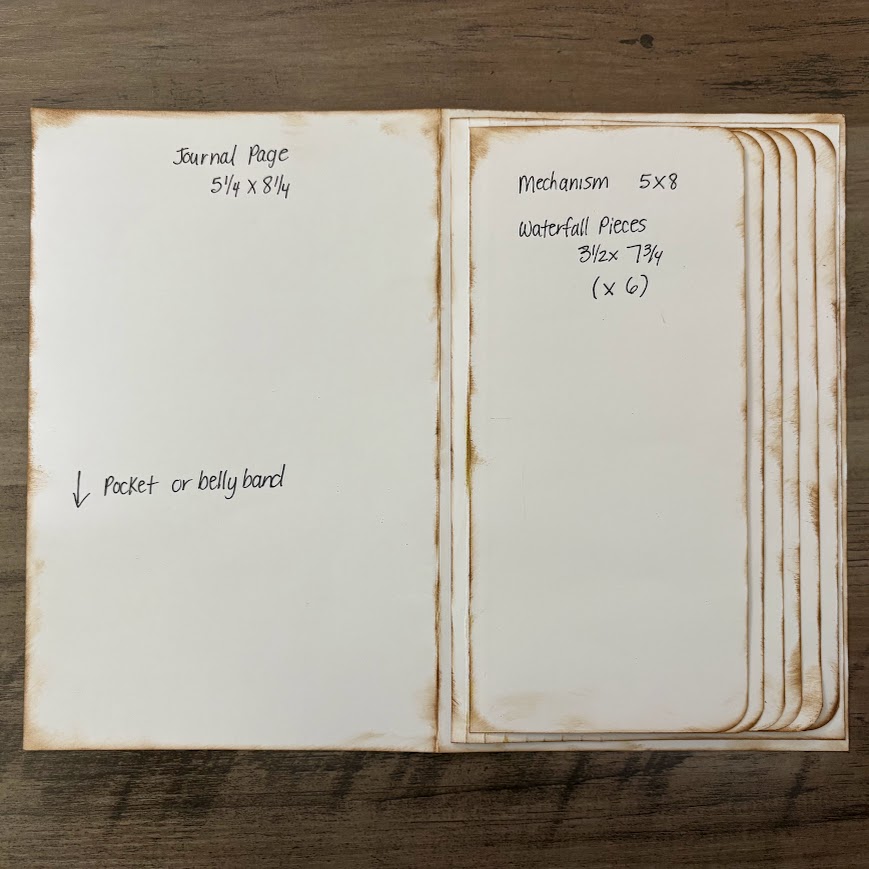 Journal Page
5 1/4 x 8 1/4
↓ Pocket or belly band
Mechanism 5x8
Waterfall Pieces
3 1/2 x 7 3/4
(x 6)